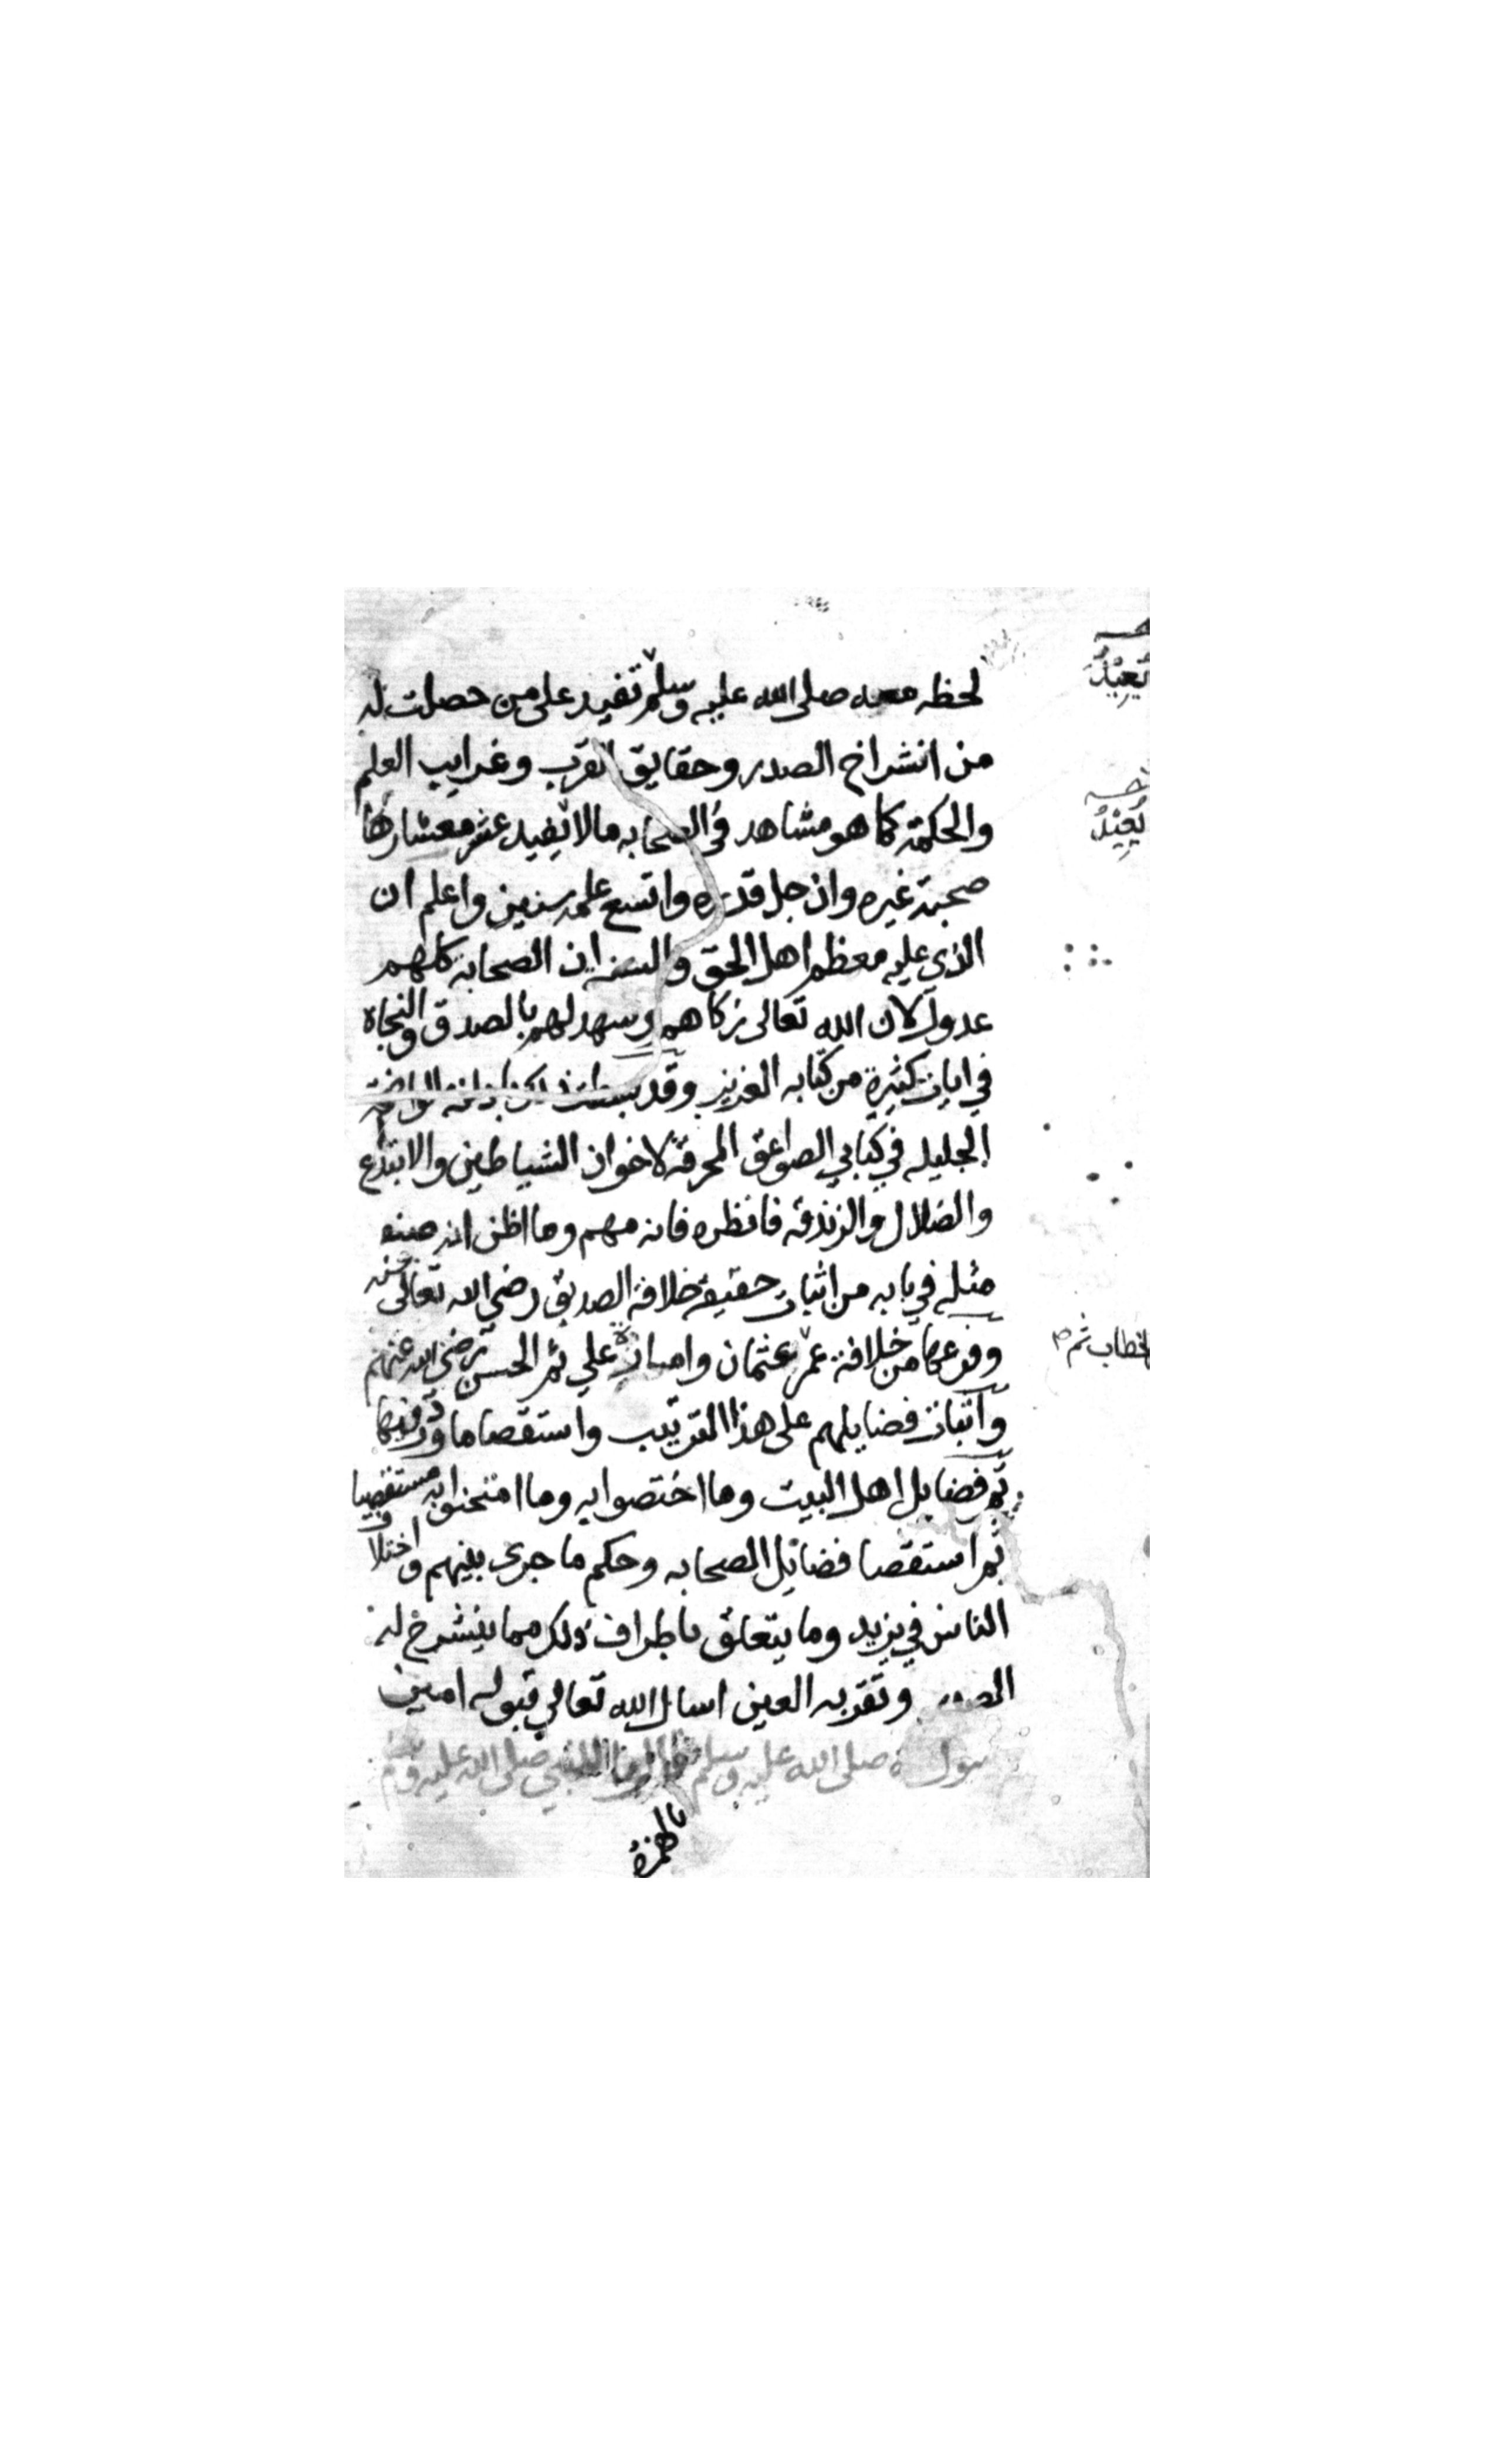 لحظه معه صلى الله عليه وسلم تفيد على من حصلت له
من انشراح الصدر وحقايق القرب وغرايب العلم
والحكمة كما هو مشاهد في الصحابه مالا يفيد عشر معشارها
صحبة غيره وان جل قدره واتسع علمه سنين واعلم ان
الذي عليه معظم اهل الحق والسنه ان الصحابة كلهم
عدول لان الله تعالى زكاهم وشهد لهم بالصدق والنجاة
في ايات كثيرة من كتابه العزيز وقد بسطت ذلك بادلته الواضحة
الجليله في كتابي الصواعق المحرقة لاخوان الشياطين والابتداع
والضلال والزندقه فانظره فانه مهم وما اظن انه صنف
مثله في بابه من اثبات حقيقة خلافة الصديق رضي الله تعالى عنه
وفوعها من خلافة عمر عثمان وامارة علي ثم الحسن رضي الله عنهم
واثبات فضايلهم على هذا الترتيب واستقصا ما ورد فيها
ثم فضايل اهل البيت وما اختصوا به وما امتحنوا به مستقصيا
ثم استقصا فضائل الصحابه وحكم ما جرى بينهم واختلاف
الناس في يزيد وما يتعلق باطراف ذلك مما ينشرح له
الصدر وتقر به العين اسال الله تعالى قبوله امين
صلى الله عليه وسلم النبي صلى الله عليه وسلم
بالهمزة
تعيد
يعيد
الخطاب ثم